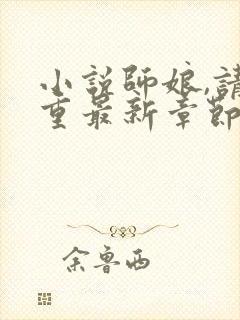 小說師娘,請
重最新章節
余魯西